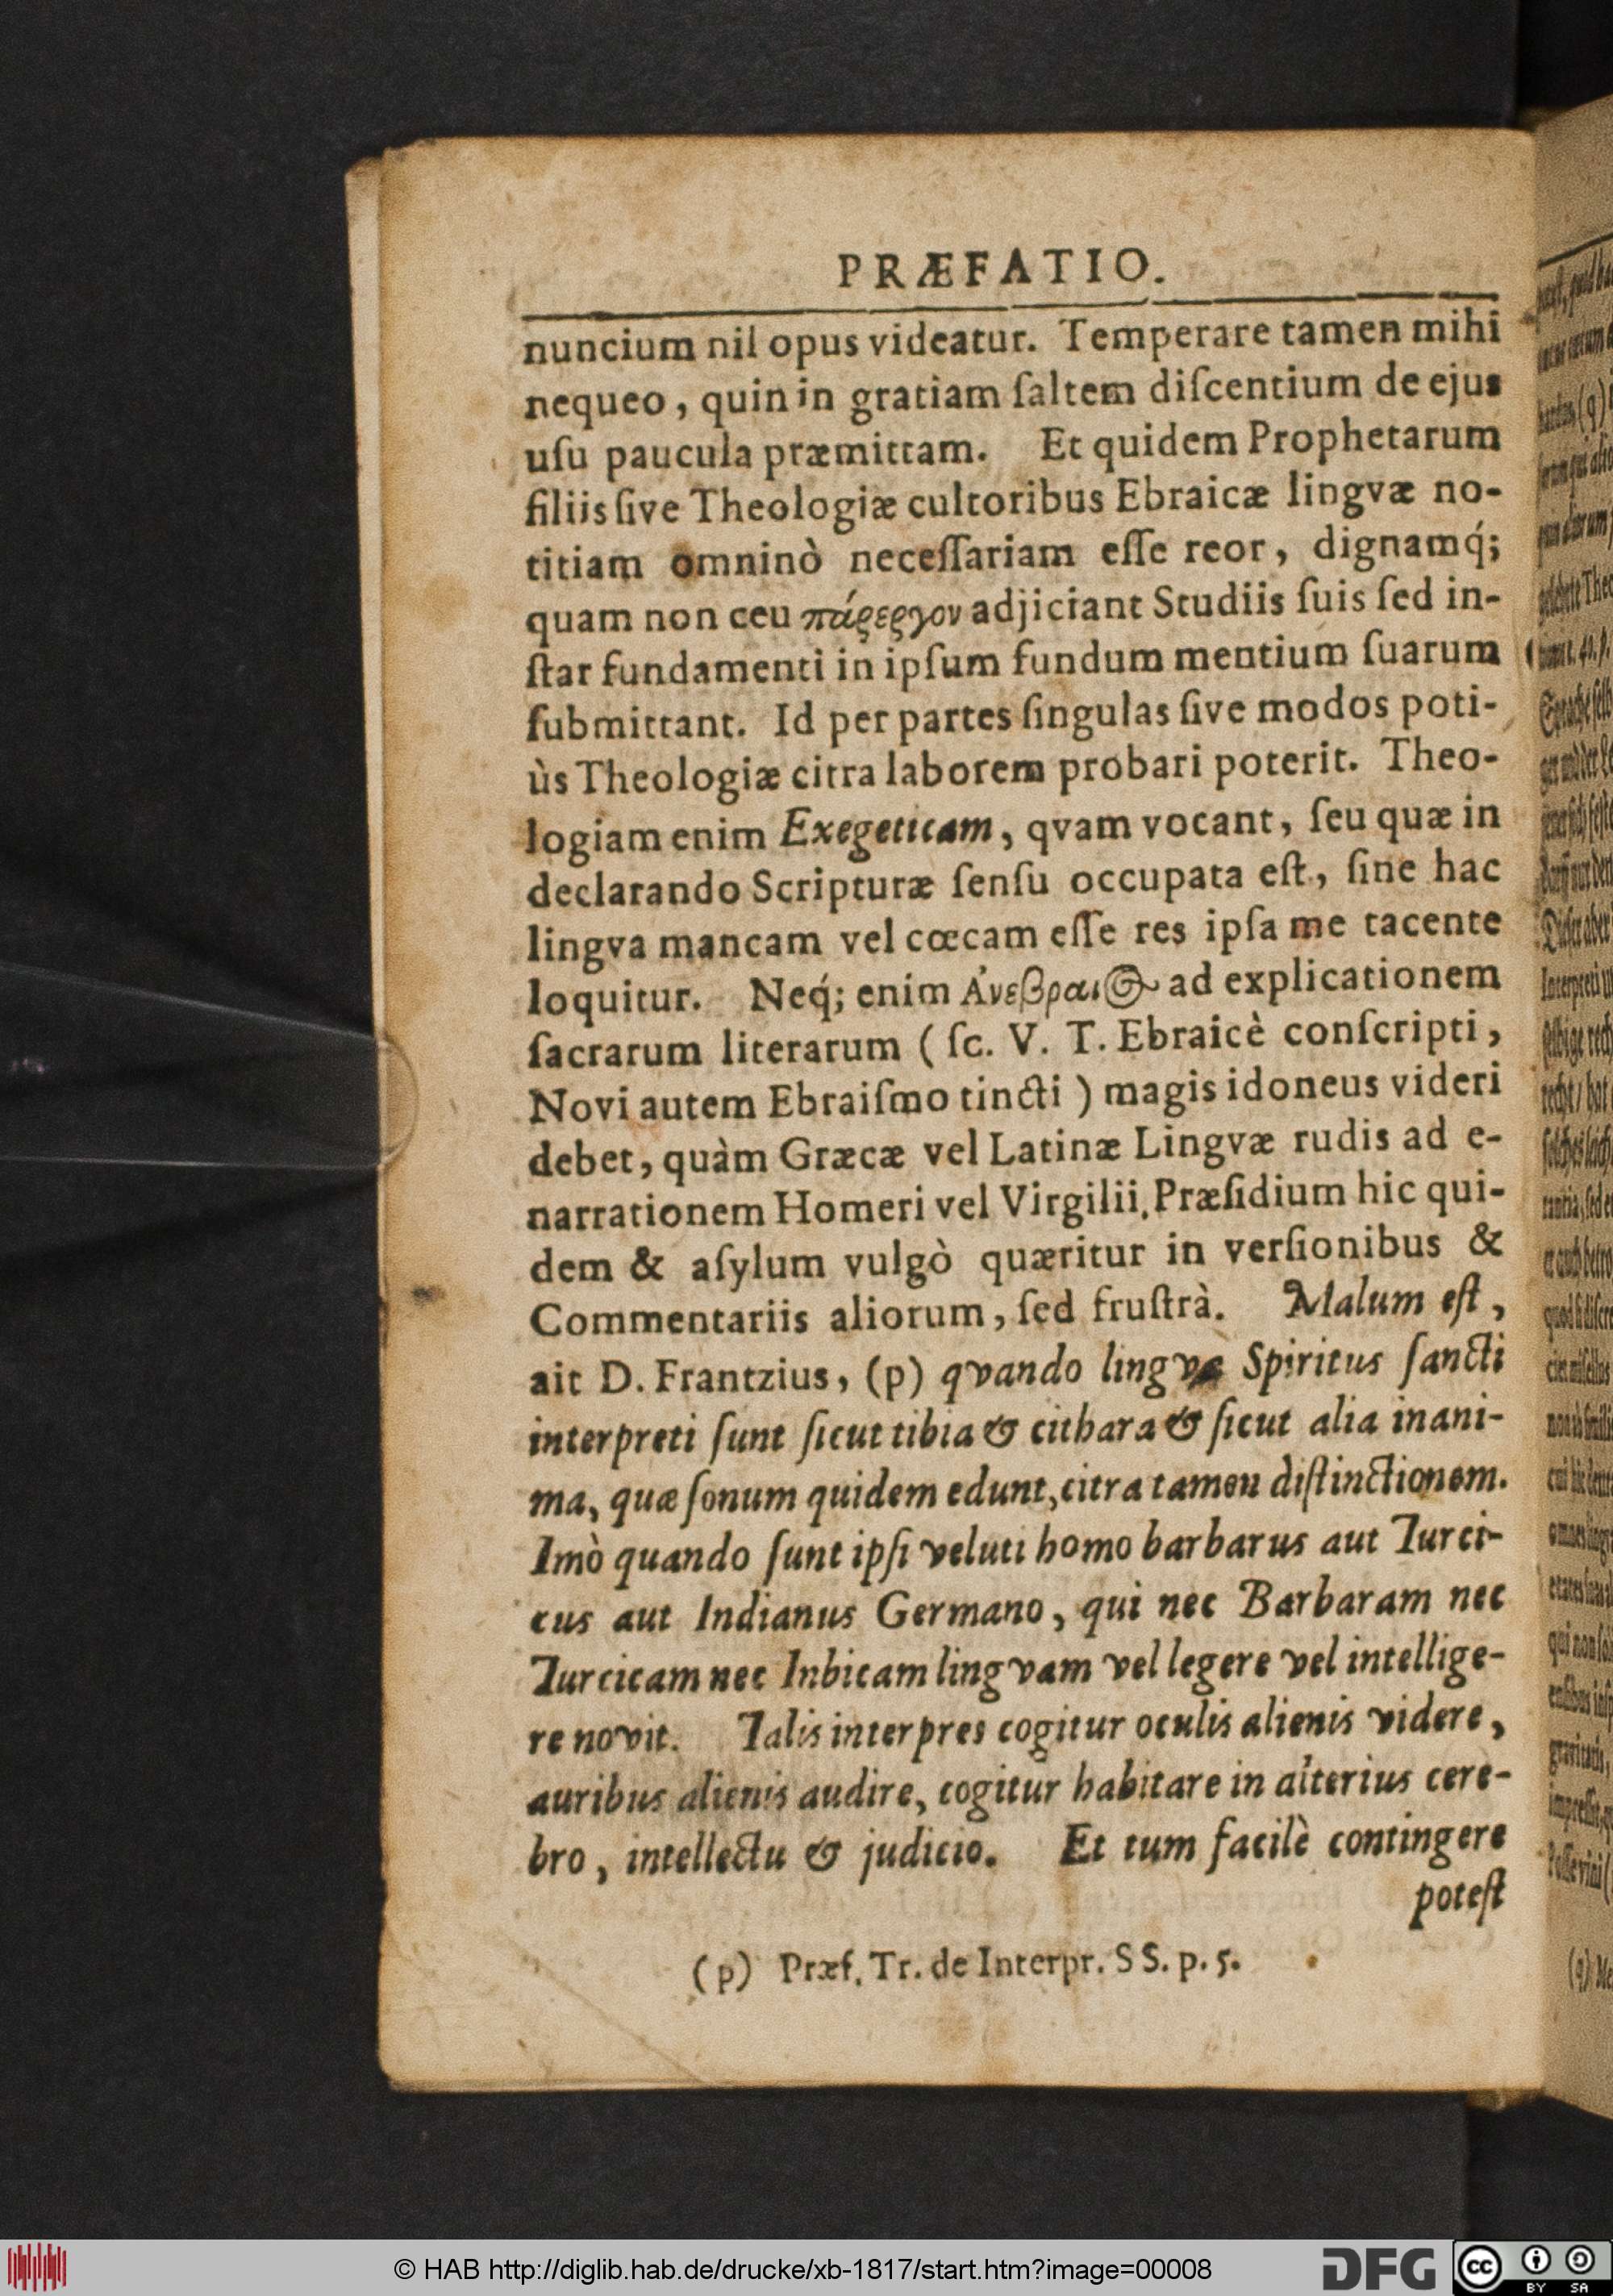 PRÆFATIO.
nuncium nil opus videatur. Temperare tamen mihi
nequeo, quin in gratiam ſaltem diſcentium de ejus
uſu paucula præmittam. Et quidem Prophetarum
filiis ſive Theologiæ cultoribus Ebraicæ lingvæ no-
titiam omninò neceſſariam eſſe reor, dignamq́;
quam non ceu πάρεργον adjiciant Studiis ſuis ſed in-
ſtar fundamenti in ipſum fundum mentium ſuarum
ſubmittant. Id per partes ſingulas ſive modos poti-
ùs Theologiæ citra laborem probari poterit. Theo-
logiam enim Exegeticam, qvam vocant, ſeu quæ in
declarando Scripturæ ſenſu occupata eſt, ſine hac
lingva mancam vel cœcam eſſe res ipſa me tacente
loquitur. Neq́; enim Ἀνεβραιος ad explicationem
ſacrarum literarum (ſc. V. T. Ebraicè conſcripti,
Novi autem Ebraiſmo tincti) magis idoneus videri
debet, quàm Græcæ vel Latinæ Lingvæ rudis ad e-
narrationem Homeri vel Virgilii. Præſidium hic qui-
dem & aſylum vulgò quæritur in verſionibus &
Commentariis aliorum, ſed fruſtrà. Malum eſt,
ait D. Frantzius, (p) qvando lingvæ Spiritus ſancti
interpreti ſunt ſicut tibia & cithara & ſicut alia inani-
ma, quæ ſonum quidem edunt, citra tamen diſtinctionem.
Imò quando ſunt ipſi veluti homo barbarus aut Turci-
cus aut Indianus Germano, qui nec Barbaram nec
Turcicam nec Inbicam lingvam vel legere vel intellige-
re novit. Talis interpres cogitur oculis alienis videre,
auribus alienis audire, cogitur habitare in alterius cere-
bro, intellectu & judicio. Et tum facilè contingere
poteſt
(p) Præf. Tr. de Interpr. SS. p. 5.
© HAB http://diglib.hab.de/drucke/xb-1817/start.htm?image=00008
DFG
cc
BY SA